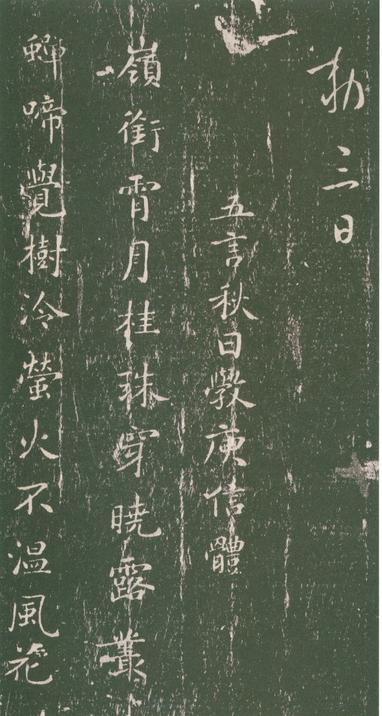 勅三日
五言秋日斆庾信體
嶺銜霄月桂珠穿曉露叢
蟬啼覺樹冷螢火不溫風花